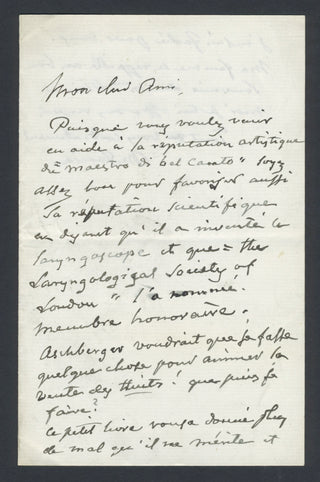 Mon cher Ami,
Puisque vous voulez venir
en aide à la réputation artistique
du "maestro di bel canto" soyez
assez bon pour favoriser aussi
sa réputation scientifique
en disant qu'il a inventé le
laryngoscope et que "the
Laryngological Society of
London" l'a nommé
membre honoraire.
Aschberger voudrait que je fasse
quelque chose pour animer la
vente des ! que puis-je
faire?
Ce petit livre vous a donné plus
de mal qu'il ne mérite et